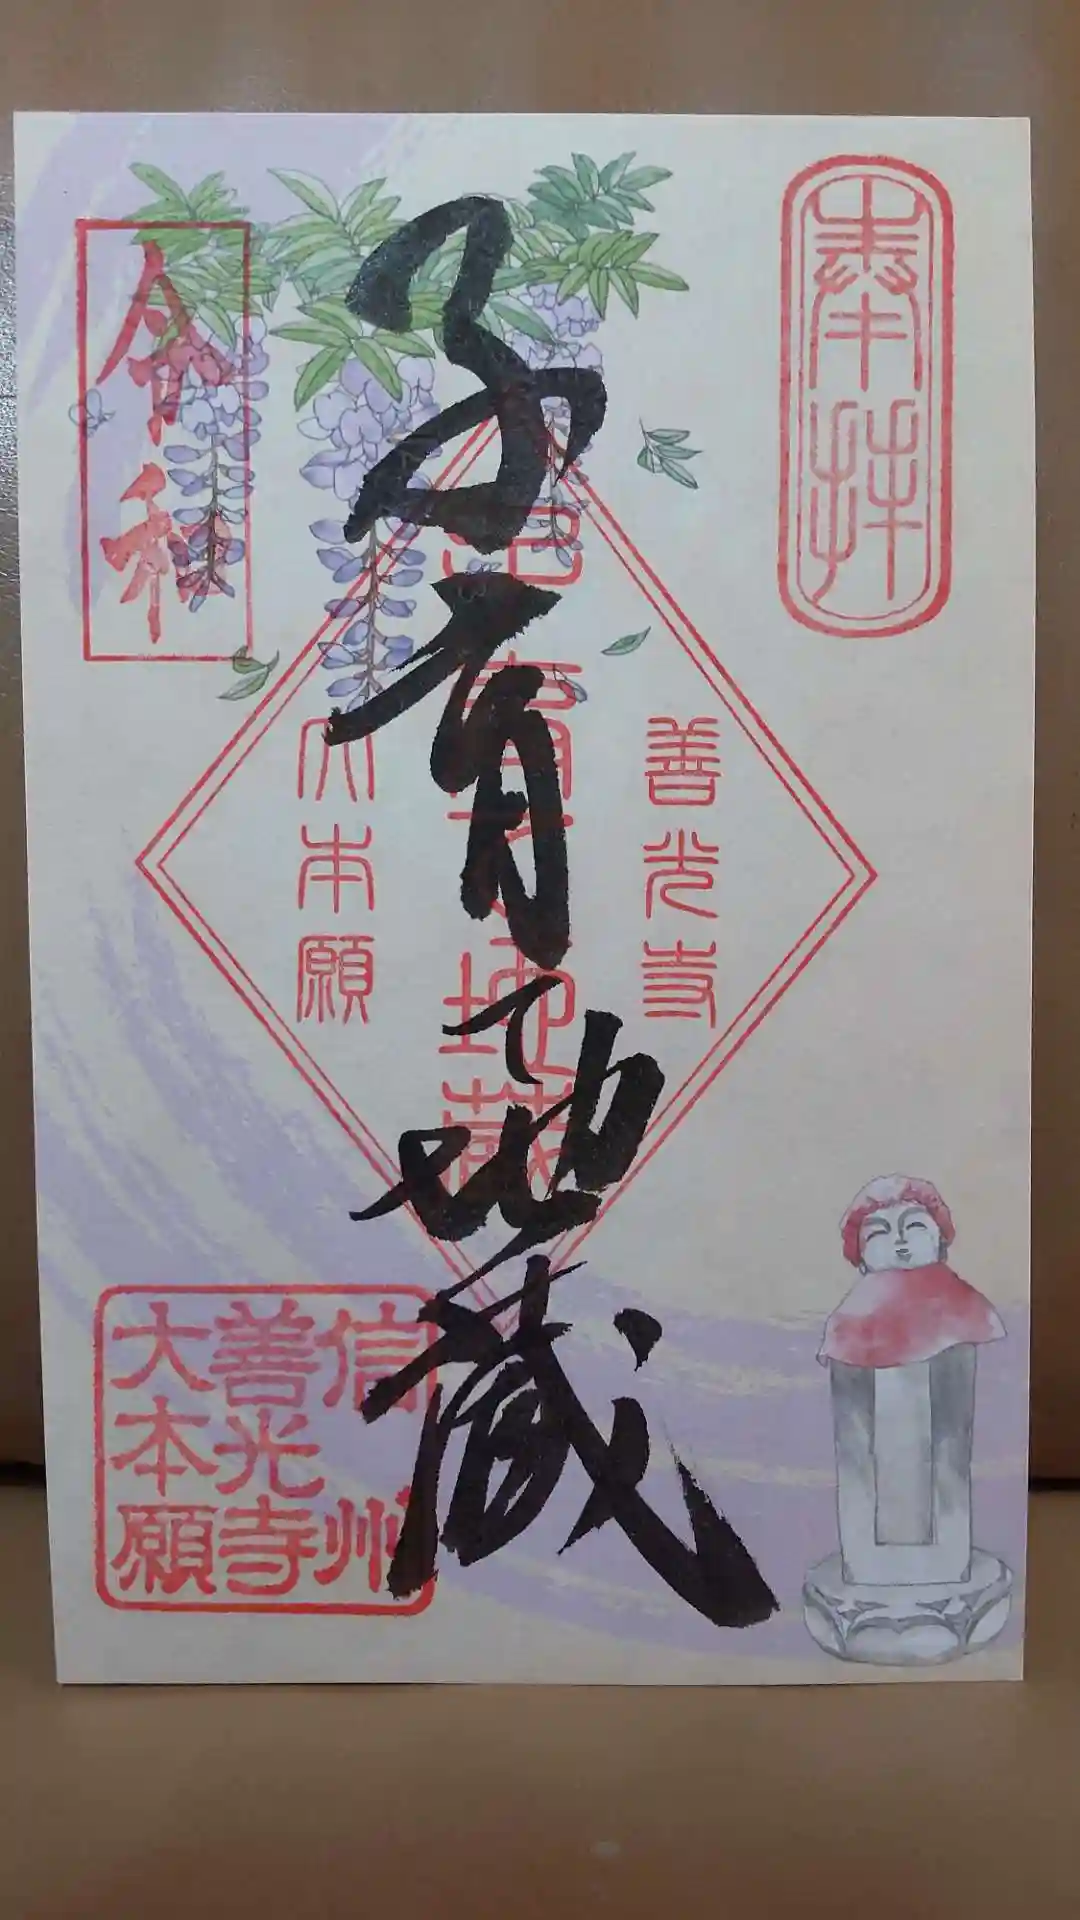 奉拝
善光寺
子育て地蔵
子育て地蔵
大本願
令和
信州
善光寺
大本願